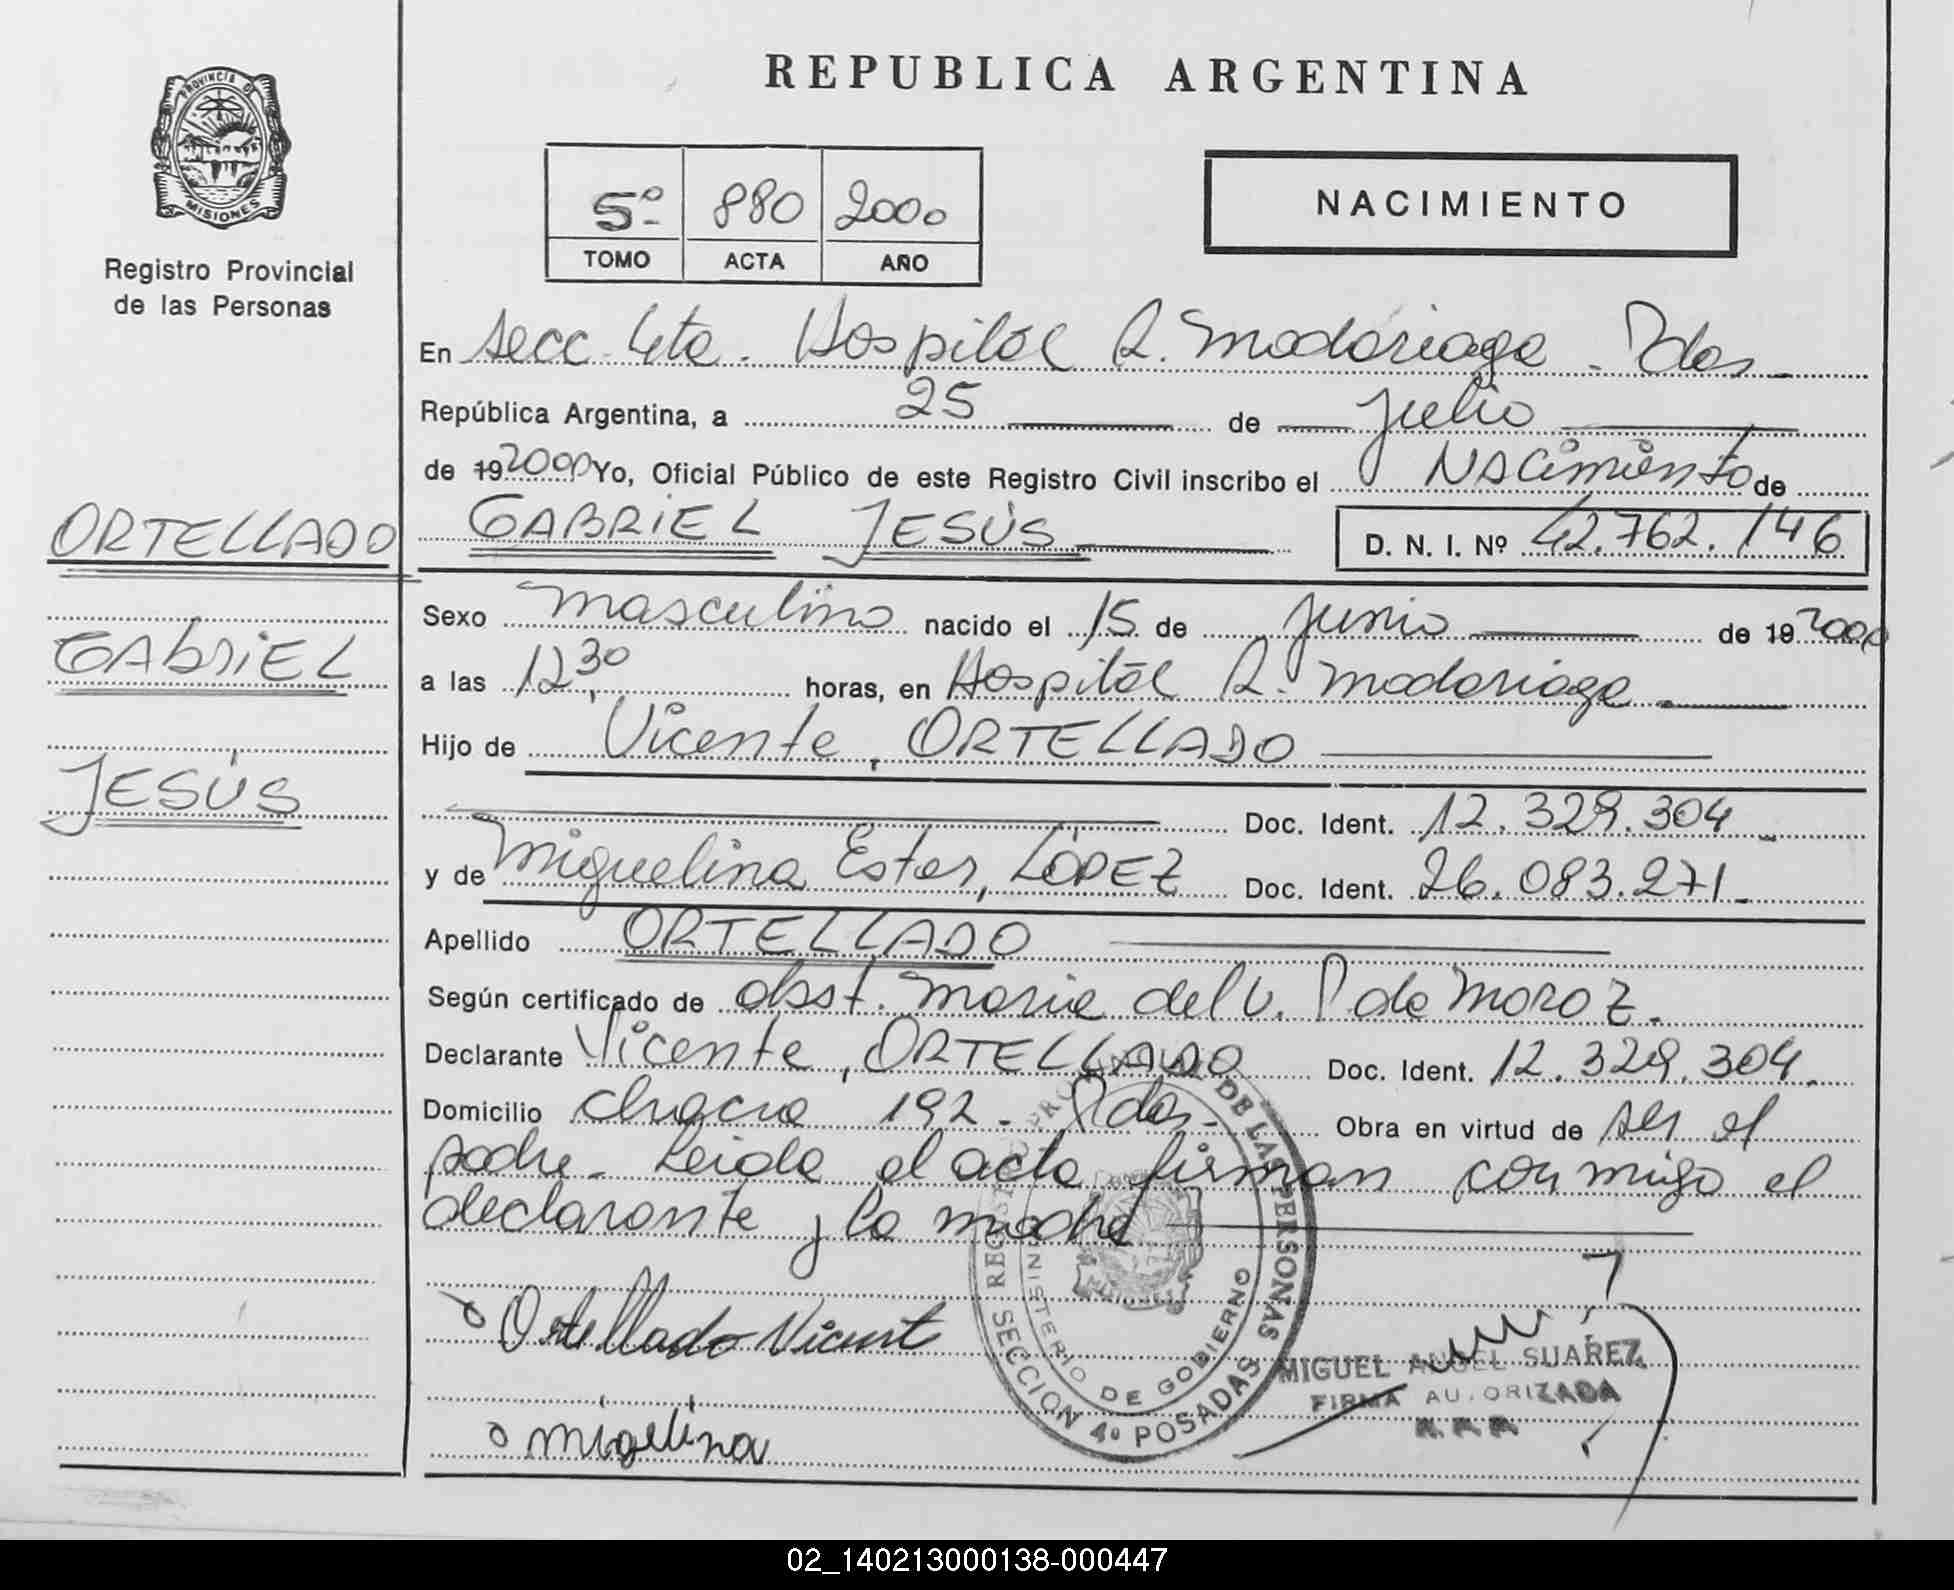 REPUBLICA ARGENTINA
PROVINCIA DE
MISIONES
Registro Provincial
de las Personas
5º 880 2000
TOMO ACTA AÑO
NACIMIENTO
En Secc 4ta. Hospital R. Madariaga. Pdas
República Argentina, a 25 de Julio
de 19 2000 Yo, Oficial Público de este Registro Civil inscribo el Nacimiento de
GABRIEL JESÚS D. N. I. Nº 42.762.146
ORTELLADO
GABRIEL
JESÚS
Sexo Masculino nacido el 15 de Junio de 19 2000
a las 12,30 horas, en Hospital R. Madariaga
Hijo de Vicente, ORTELLADO
Doc. Ident. 12.329.304
y de Miguelina Ester, LÓPEZ Doc. Ident. 26.083.271
Apellido ORTELLADO
Según certificado de obst. Maria del V. P de Moroz.
Declarante Vicente, ORTELLADO Doc. Ident. 12.329.304.
Domicilio Chacra 192 - Pdas. Obra en virtud de ser el
padre. Leida el acta firman conmigo el
declarante y la madre
Ortellado Vicent
migelina
REGISTRO PROVINCIAL DE LAS PERSONAS
MINISTERIO DE GOBIERNO
SECCION 4º POSADAS
MIGUEL ANGEL SUAREZ
FIRMA AUTORIZADA
02_140213000138-000447